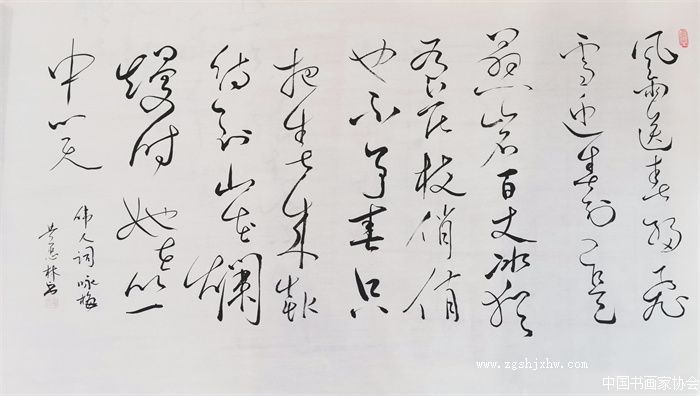 风雨送春归飞
雪迎春到已是
悬岩百丈冰犹
有花枝俏俏
也不争春只
把春来报
待到山花烂
熳时她在丛
中笑
伟人词咏梅
林书
www.zgshjxhw.com
中国书画家协会